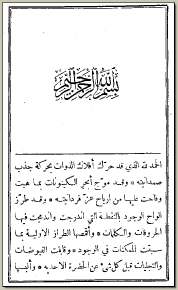 بسم الله الرحمن الرحيم
الحمد لله الذي قد حرك أفلاك الذوات بحركة جذب
صمدانيته * وقد موج أبحر الكينونات بما هبت
وفاحت عليها من ارياح عز فردانيته * وقد طرز
الواح الوجود بالنقطة التي اندرجت واندمجت فيها
الحروفات والكلمات * وأقمصها الطراز الأولية بما
سبقت الممكنات في الوجود * وقابلت الفيوضات
والتجليات قبل كل شيء عن الحضرة الاحدية * وألبسها